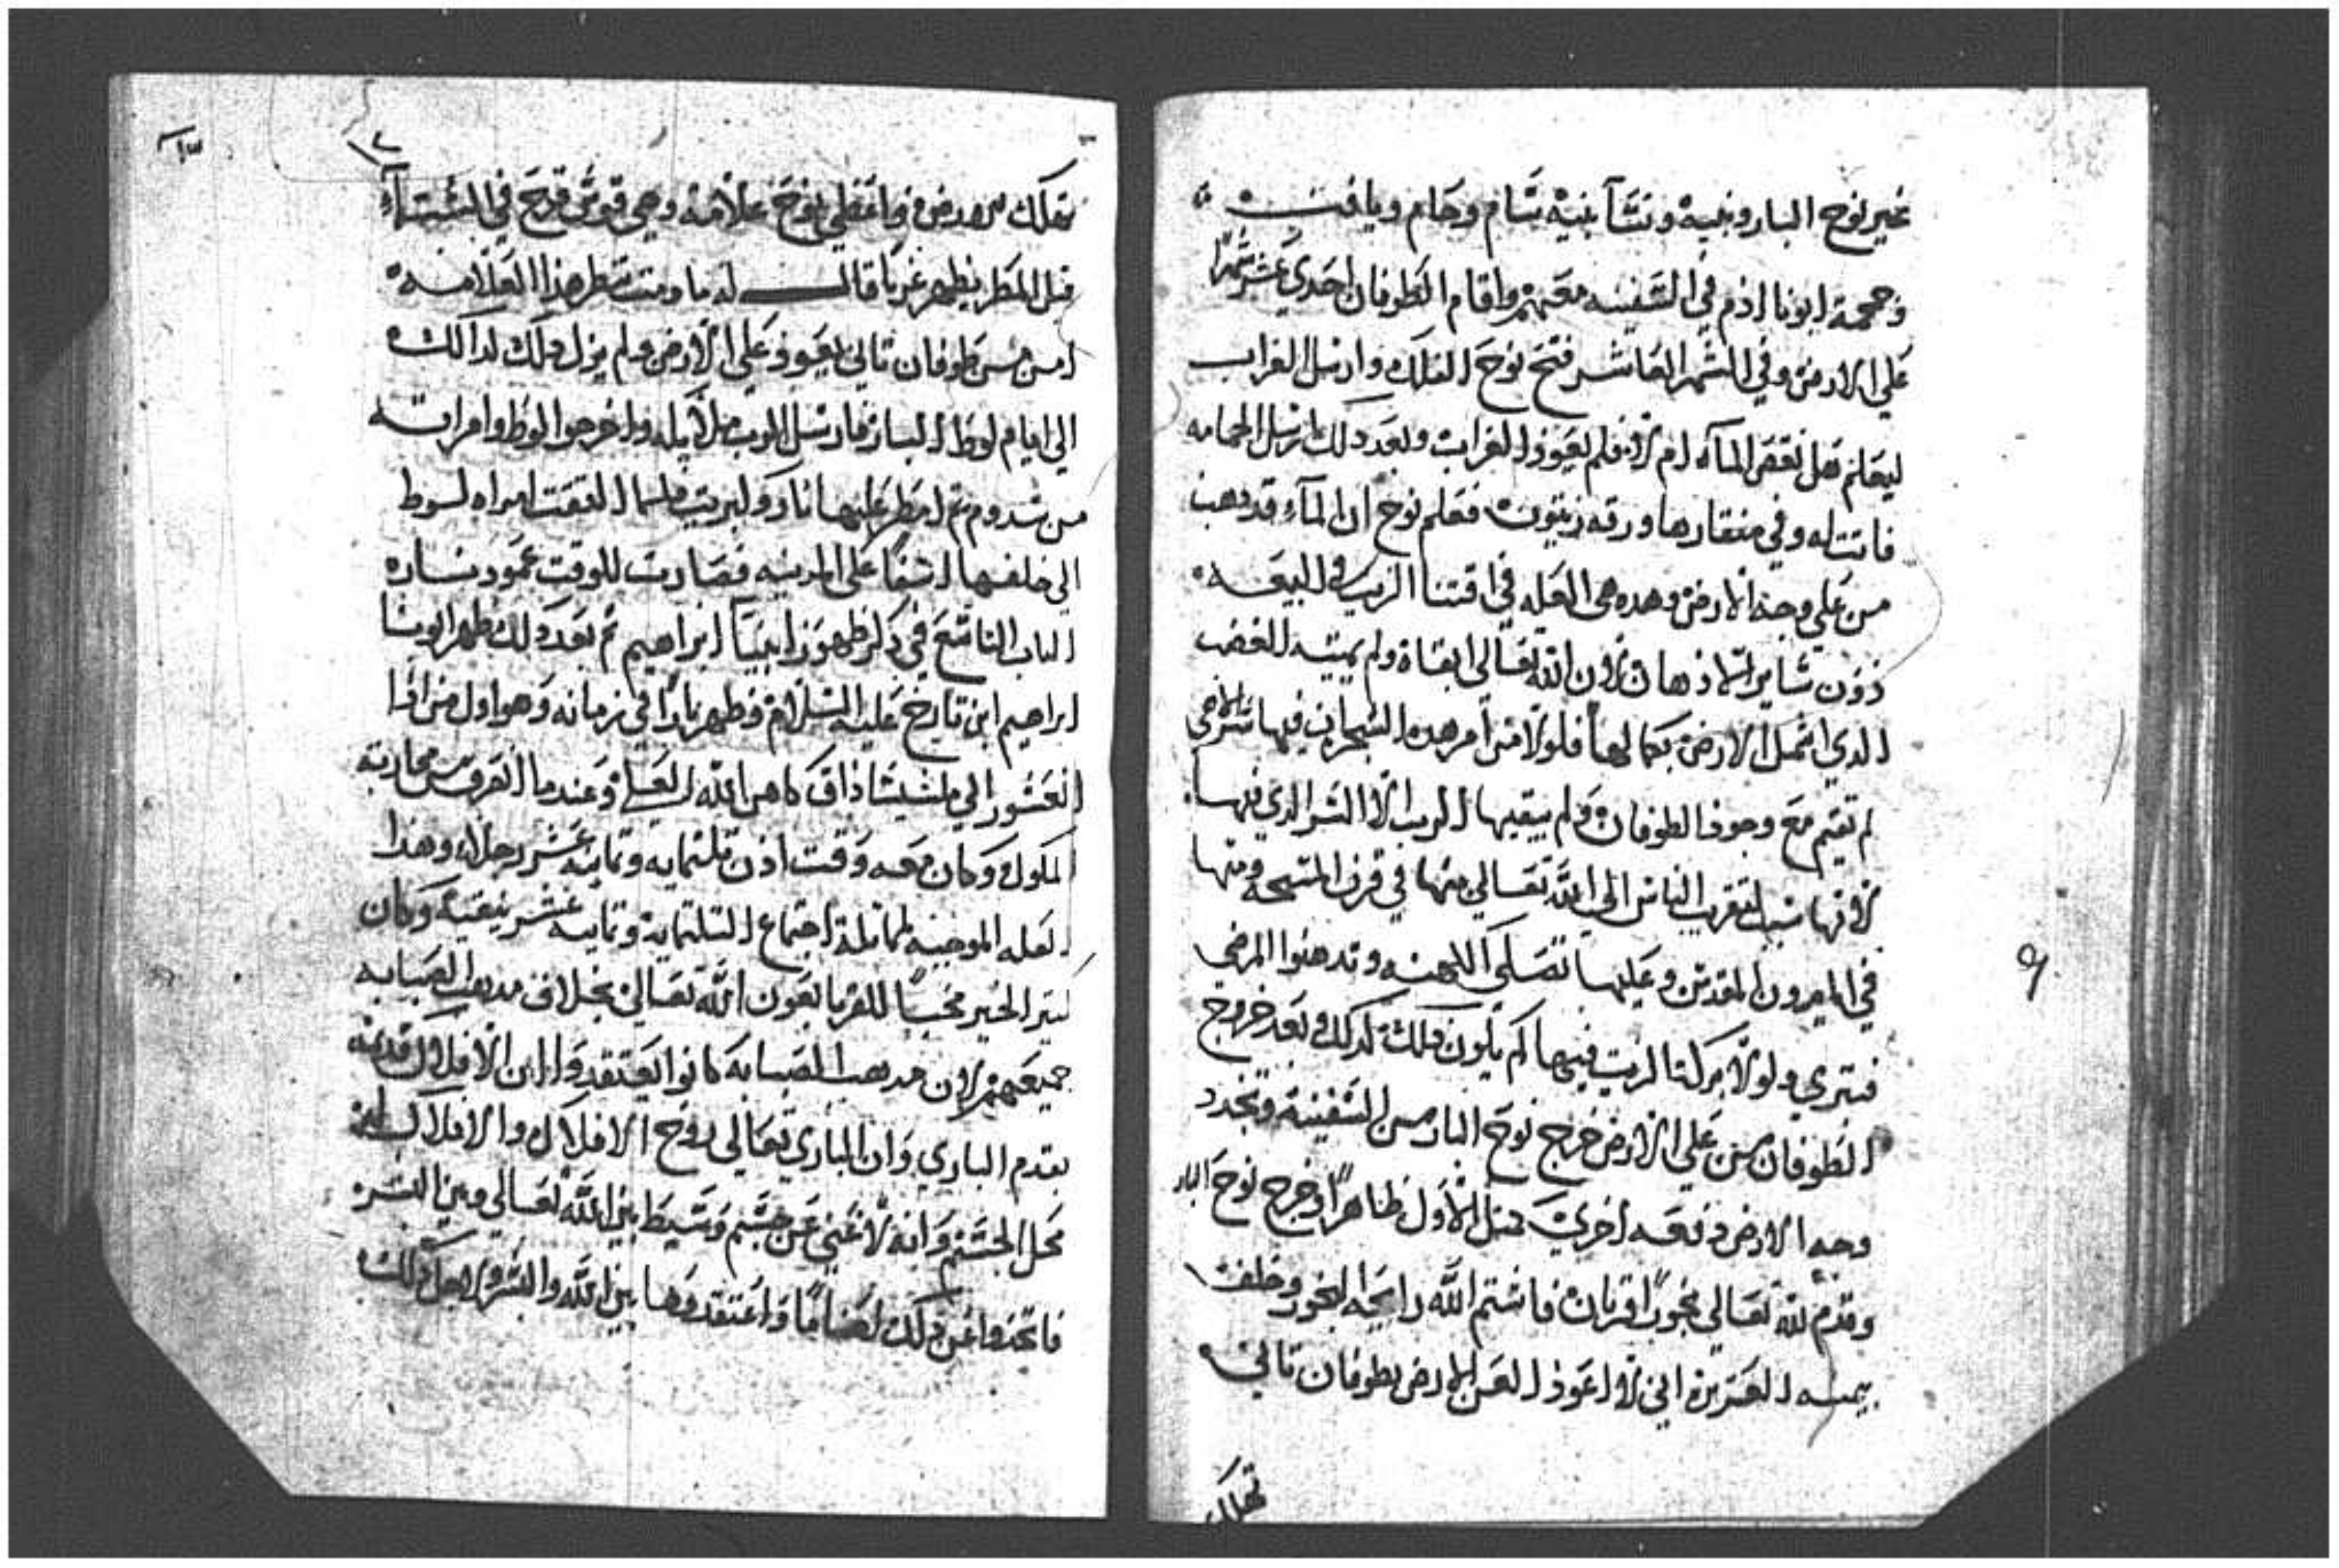 غير نوح البار وبنيه ونشآ بنيه شام وحام ويافت
وجمجمة ابونا ادم في السفينه معهم واقام الطوفان احدي عشر شهرا
علي الارض وفي الشهر العاشر فتح نوح الفلك وارسل الغراب
ليعلم هل نقص المآء ام لا فلم يعود الغراب وبعد دلك ارسل الحمامه
فاتت له وفي منقارها ورقه زيتون فعلم نوح ان المآء قد دهب
من علي وجه الارض وهده هي العله في اقتنا الزيت في البيعه
دون ساير الادهان لان الله تعالي ابقاه ولم يميته الغضب
الدي اشمل الارض بكمالها فلولا من امر هده الشجره ان فيها
لم تقيم مع وجود الطوفان ولم يبقيها الرب الا السر الدي فيها
لانها سبب لتقرب الناس الي الله تعالي منها في قرن المسحه ومنها
في الميرون المقدس وعليها تصلي الكهنه وتدهنوا المرضي
فتبري ولولا بركة الزيت فيها لم يكون دلك كدلك وبعد خروج
الطوفان من علي الارض خرج نوح البار من السفينه وتجدد
وجه الارض دفعه اخري مثل الاول ظاهرا وخرج نوح البار
وقدم لله تعالي بخور اقربان فاشتم الله رايحة البخور وخلف
بيمينه العزيزه اني لا اعود العن الارض بطوفان تاني
تهلك
تهلك الارض واعطي نوح علامه وهي قوس قزح في الشتآء
قبل المطر يظهر غربا قال له مادمت تنظر هذا العلامه
امن من طوفان تاني يعود علي الارض ولم يزل دلك كدالك
الي ايام لوط البار فارسل الرب ملايكه واخرجوا لوط وامراته
من سدوم تم امطر عليها نار وكبريت فلما التفتت امراه لوط
الي خلفها اسفا علي المدينه فصارت للوقت عمود
الباب التاسع في دكر ظهور ابينا ابراهيم تم بعد دلك ظهر ابونا
ابراهيم ابن تارخ عليه السلام فظهر بارا في زمانه وهو اول من
العشور الي ملشيشاداق كاهن الله العلي وعندما انصرف من محاربة
الملوك وكان معه وقت ادن تلتمايه وتمانيه عشر رجلا وهدا
لعله الموجبه لمماتلة اجتماع التلتمايه وتمانيه عشر بنيقيه وكان
كتير الخير محبا للغربا بعون الله تعالي بخلاف مدهب الصبابه
جميعهم لان مدهب الصبابه كانوا يعتقدوا ان الافلاك قديمه
بقدم الباري وان الباري تعالي روح الافلاك والافلاك
محل الجسم وانه لا غني عن جسم وسيط بين الله تعالي وبين البشر
فاتخدوا عن دلك اصناما واعتقدوها بين الله والبشر ولاجل دلك